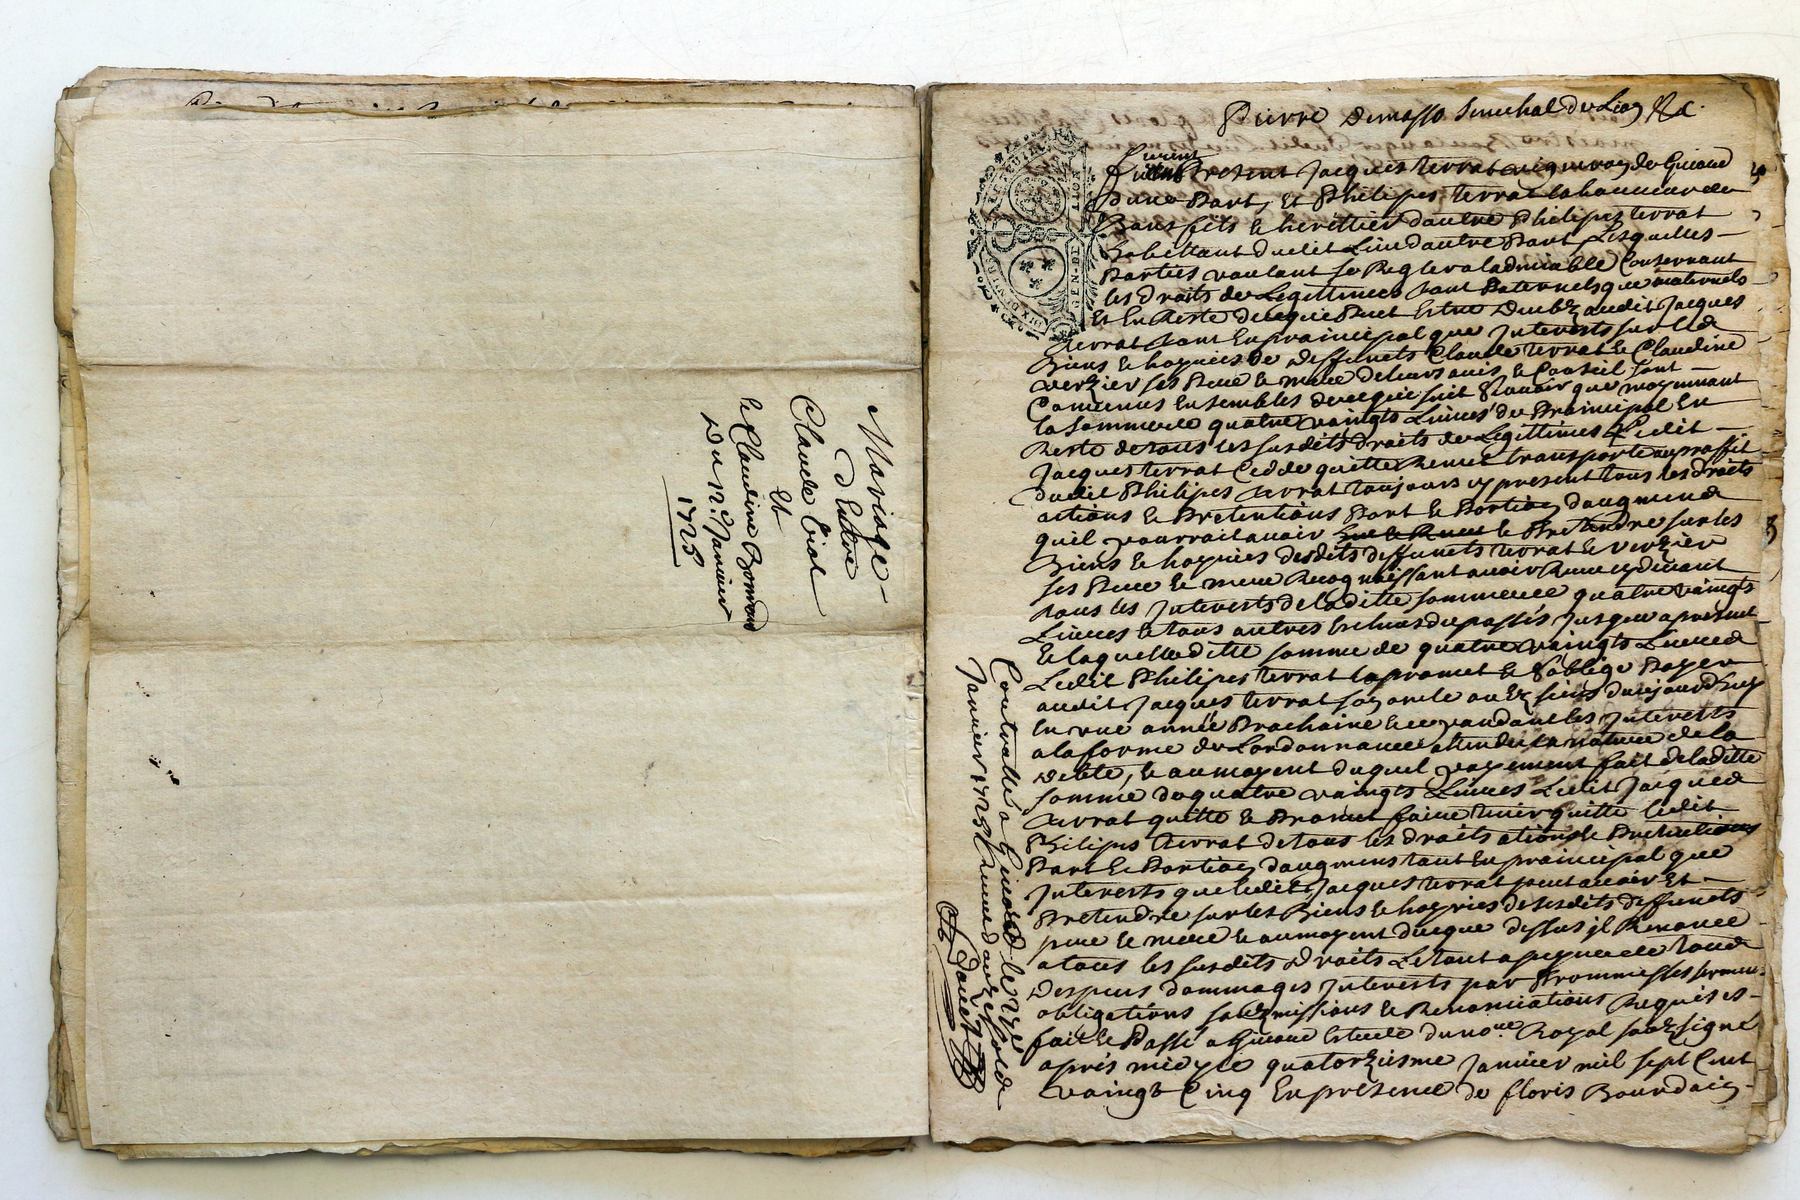 Mariage
d'Entre
Claude Vial
Et
& Claudine Bonnand
Du 12e Janvier
1725
Pierre Demasso Senechal de Lion &c
furent Present Jacques terrat vigneron de Givord
Dune Part, Et Philipes terrat laboureur du
fils & herittier dautre Philipes terrat
habittant dudit Lieu dautre Part Lesquelles
Parties voulant se Regler aladmiable Consernant
les droits de Legittimes tant Paternels que maternels
Et En Reste dicqui Peut Estre deub audit Jacques
terrat tant En prainsipal que Jnterests sur les
Biens & hoyries de deffunets Claude terrat & Claudine
verzier ses Pere & mere de leurs avis & Conseil sont
Convenus Ensembles de ce qui suit sçavoir que moyennant
la Somme de quatre vaingts Livres de Prainsipal En
Reste de tous les susdits droits de Legittimes Ledit
Jacques terrat Cedde quitte Remet transporte au proffit
dudit Philipes terrat toujours cy present tous les droits
actions & Pretentions Part & Portion daugment
quil pourroit avoir & Pretendre sur les
Biens & hoyries desdits deffunets terrat & verzier
ses Pere & mere Recognoissant avoir Receu cy devant
tous les Jnterests de laditte somme de quatre vaingts
Livres & tous autres Escheus du passés Jusque a present
& laquelle ditte somme de quatre vaingts Livres
Ledit Philipes terrat la promet & soblige Payer
audit Jacques terrat son oncle ou ez siens dicy aujourdhuy
En une année Prochaine & ce pandant les Jnterests
a la forme de Lordonnance attendu la nature de la
debte, & au moyent duquel payement fait de laditte
somme de quatre vaingts Livres Ledit Jacques
terrat quitte & Promet faire tenir quitte ledit
Philipes terrat de tous les droits ations & Pretentions
Part & Portion daugment tant En prainsipal que
Jnterests que ledit Jacques terrat peut avoir Et
Pretendre sur les Biens & hoyries desdits deffunets
pere & mere & au moyent dicque dessus jl Renonce
a tous les susdits droits Le tout a peyne de tous
Despens dommages Jnterests par Prommesses sermens
obligations soubzmissions & Renonciations Requises
fait & Passé a Givord Estude du nore Royal soubzsigné
aprés midy le quatorziesme Janvier mil sept Cent
vaingt Cinq En présence de floris Bourdain
Controllé a Givord le
Janvier 1725 Receu douze sols